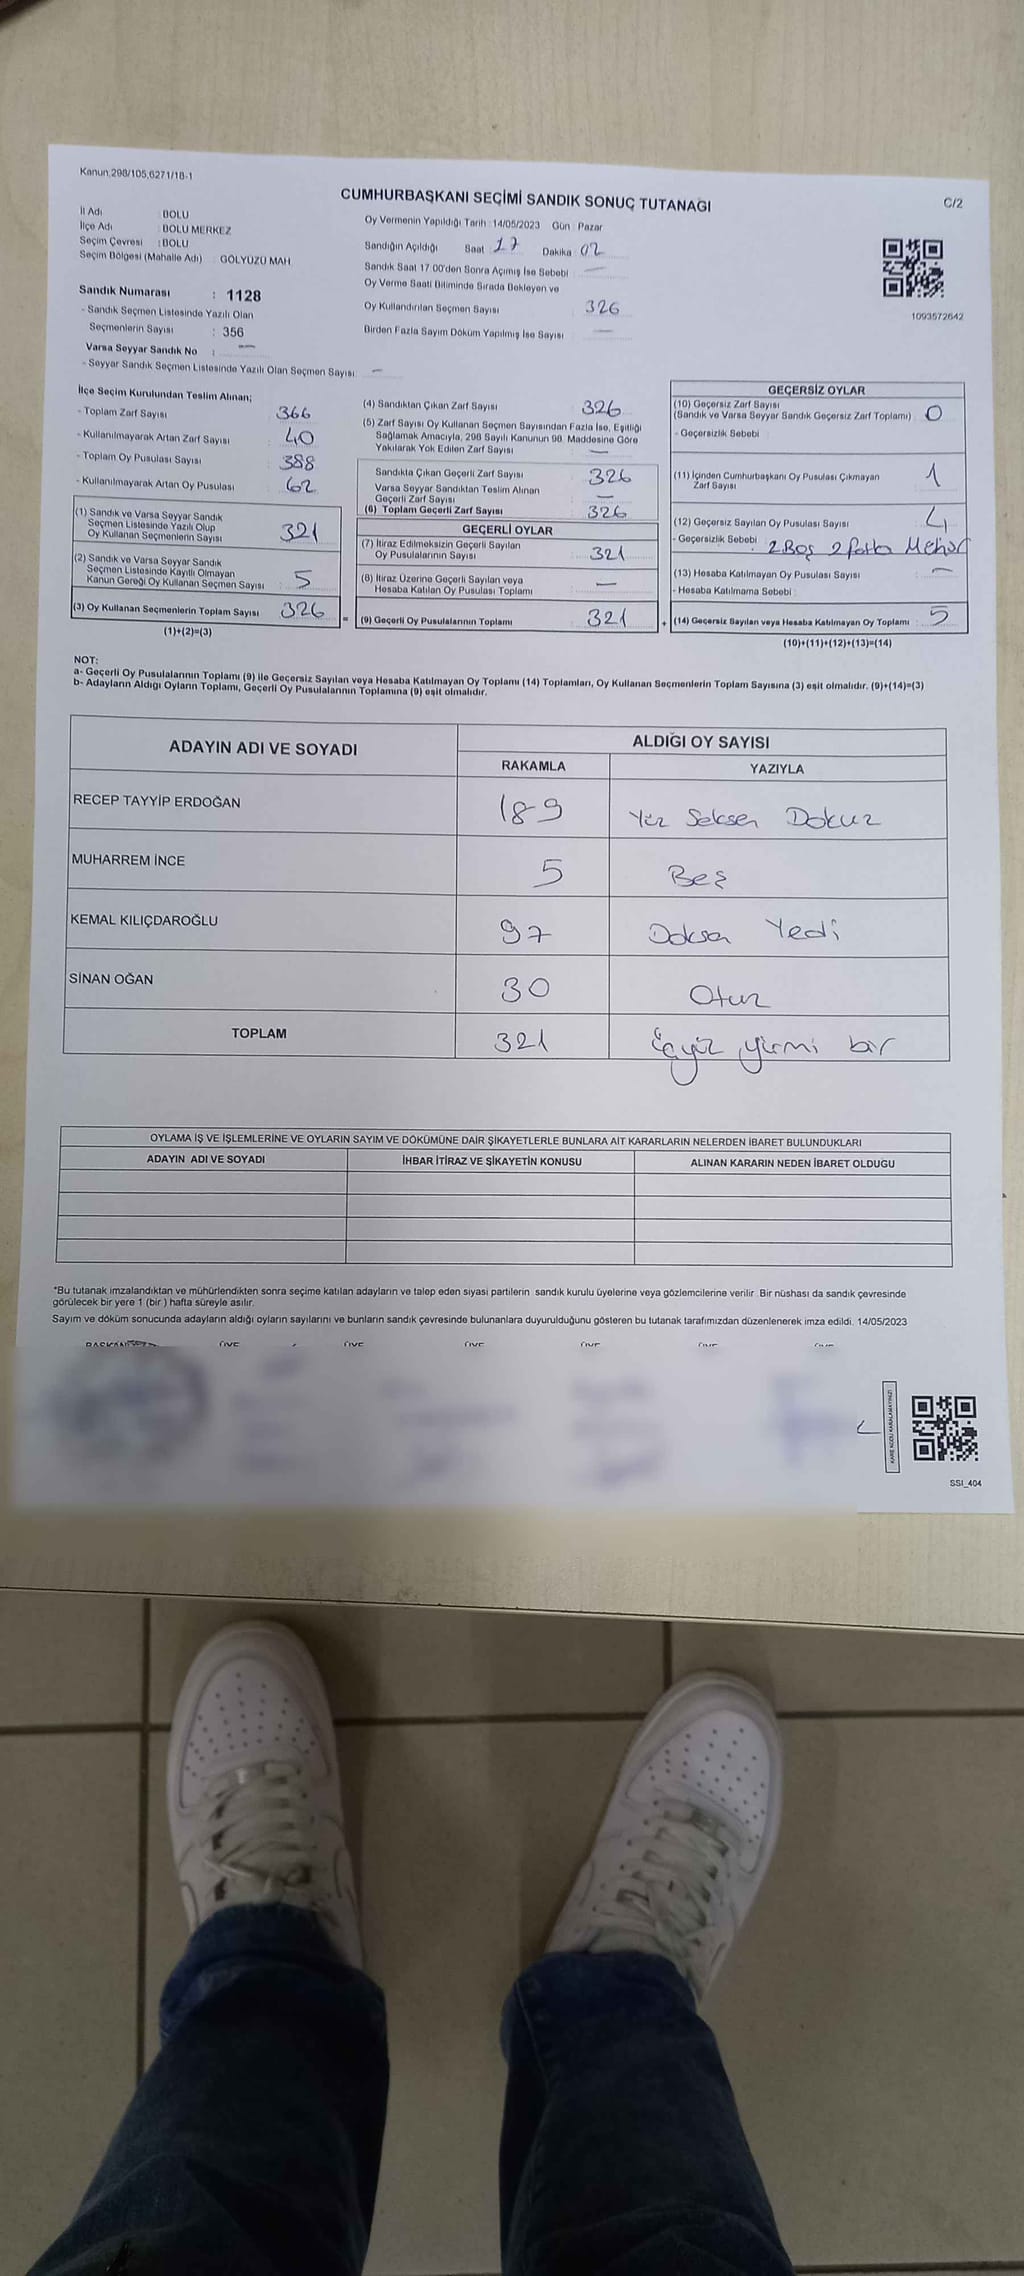 Kanun.298/105,6271/18-1
CUMHURBAŞKANI SEÇİMİ SANDIK SONUÇ TUTANAĞI
C/2
İl Adı : BOLU
İlçe Adı : BOLU MERKEZ
Seçim Çevresi : BOLU
Seçim Bölgesi (Mahalle Adı) : GÖLYÜZÜ MAH.
Sandık Numarası : 1128
- Sandık Seçmen Listesinde Yazılı Olan
Seçmenlerin Sayısı : 356
Varsa Seyyar Sandık No : —
- Seyyar Sandık Seçmen Listesinde Yazılı Olan Seçmen Sayısı: —
Oy Vermenin Yapıldığı Tarih : 14/05/2023 Gün : Pazar
Sandığın Açıldığı Saat 17 Dakika 02
Sandık Saat 17.00'den Sonra Açımış İse Sebebi : —
Oy Verme Saati Bitiminde Sırada Bekleyen ve
Oy Kullandırılan Seçmen Sayısı 326
Birden Fazla Sayım Döküm Yapılmış İse Sayısı —
1093572642
İlçe Seçim Kurulundan Teslim Alınan;
- Toplam Zarf Sayısı : 366
- Kullanılmayarak Artan Zarf Sayısı : 40
- Toplam Oy Pusulası Sayısı : 388
- Kullanılmayarak Artan Oy Pusulası : 62
(1) Sandık ve Varsa Seyyar Sandık
Seçmen Listesinde Yazılı Olup
Oy Kullanan Seçmenlerin Sayısı : 321
(2) Sandık ve Varsa Seyyar Sandık
Seçmen Listesinde Kayıtlı Olmayan
Kanun Gereği Oy Kullanan Seçmen Sayısı : 5
(3) Oy Kullanan Seçmenlerin Toplam Sayısı : 326
(1)+(2)=(3)
(4) Sandıktan Çıkan Zarf Sayısı 326
(5) Zarf Sayısı Oy Kullanan Seçmen Sayısından Fazla İse, Eşitliği
Sağlamak Amacıyla, 298 Sayılı Kanunun 98. Maddesine Göre
Yakılarak Yok Edilen Zarf Sayısı —
Sandıkta Çıkan Geçerli Zarf Sayısı 326
Varsa Seyyar Sandıktan Teslim Alınan
Geçerli Zarf Sayısı —
(6) Toplam Geçerli Zarf Sayısı 326
GEÇERLİ OYLAR
(7) İtiraz Edilmeksizin Geçerli Sayılan
Oy Pusulalarının Sayısı : 321
(8) İtiraz Üzerine Geçerli Sayılan veya
Hesaba Katılan Oy Pusulası Toplamı : —
= (9) Geçerli Oy Pusulalarının Toplamı : 321
GEÇERSİZ OYLAR
(10) Geçersiz Zarf Sayısı
(Sandık ve Varsa Seyyar Sandık Geçersiz Zarf Toplamı) : 0
- Geçersizlik Sebebi :
(11) İçinden Cumhurbaşkanı Oy Pusulası Çıkmayan
Zarf Sayısı 1
(12) Geçersiz Sayılan Oy Pusulası Sayısı : 4
- Geçersizlik Sebebi : 2 Boş 2 fazla Mühür
(13) Hesaba Katılmayan Oy Pusulası Sayısı : —
- Hesaba Katılmama Sebebi :
+ (14) Geçersiz Sayılan veya Hesaba Katılmayan Oy Toplamı : 5
(10)+(11)+(12)+(13)=(14)
NOT:
a- Geçerli Oy Pusulalarının Toplamı (9) ile Geçersiz Sayılan veya Hesaba Katılmayan Oy Toplamı (14) Toplamları, Oy Kullanan Seçmenlerin Toplam Sayısına (3) eşit olmalıdır. (9)+(14)=(3)
b- Adayların Aldığı Oyların Toplamı, Geçerli Oy Pusulalarının Toplamına (9) eşit olmalıdır.
ADAYIN ADI VE SOYADI
ALDIĞI OY SAYISI
RAKAMLA YAZIYLA
RECEP TAYYİP ERDOĞAN 189 Yüz Seksen Dokuz
MUHARREM İNCE 5 Beş
KEMAL KILIÇDAROĞLU 97 Doksan Yedi
SİNAN OĞAN 30 Otuz
TOPLAM 321 Üçyüz yirmi bir
OYLAMA İŞ VE İŞLEMLERİNE VE OYLARIN SAYIM VE DÖKÜMÜNE DAİR ŞİKAYETLERLE BUNLARA AİT KARARLARIN NELERDEN İBARET BULUNDUKLARI
ADAYIN ADI VE SOYADI İHBAR İTİRAZ VE ŞİKAYETİN KONUSU ALINAN KARARIN NEDEN İBARET OLDUĞU
*Bu tutanak imzalandıktan ve mühürlendikten sonra seçime katılan adayların ve talep eden siyasi partilerin sandık kurulu üyelerine veya gözlemcilerine verilir. Bir nüshası da sandık çevresinde
görülecek bir yere 1 (bir ) hafta süreyle asılır.
Sayım ve döküm sonucunda adayların aldığı oyların sayılarını ve bunların sandık çevresinde bulunanlara duyurulduğunu gösteren bu tutanak tarafımızdan düzenlenerek imza edildi. 14/05/2023
KARE KODU KARALAMAYINIZ!
SSI_404